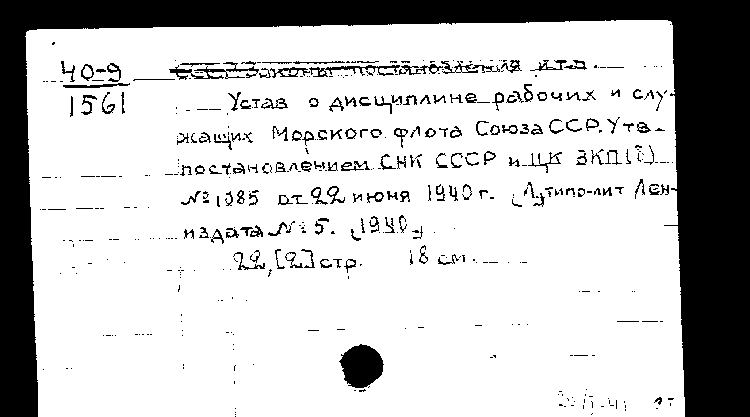 40-9
1561
СССР Законы постановления и т.п.
Устав о дисциплине рабочих и слу-
жащих Морского флота Союза ССР. Утв.
постановлением СНК СССР и ЦК ВКП(б)
№ 1085 от 22 июня 1940 г. [Л] типо-лит Лен-
издата № 5. [1940]
22, [2] стр. 18 см.